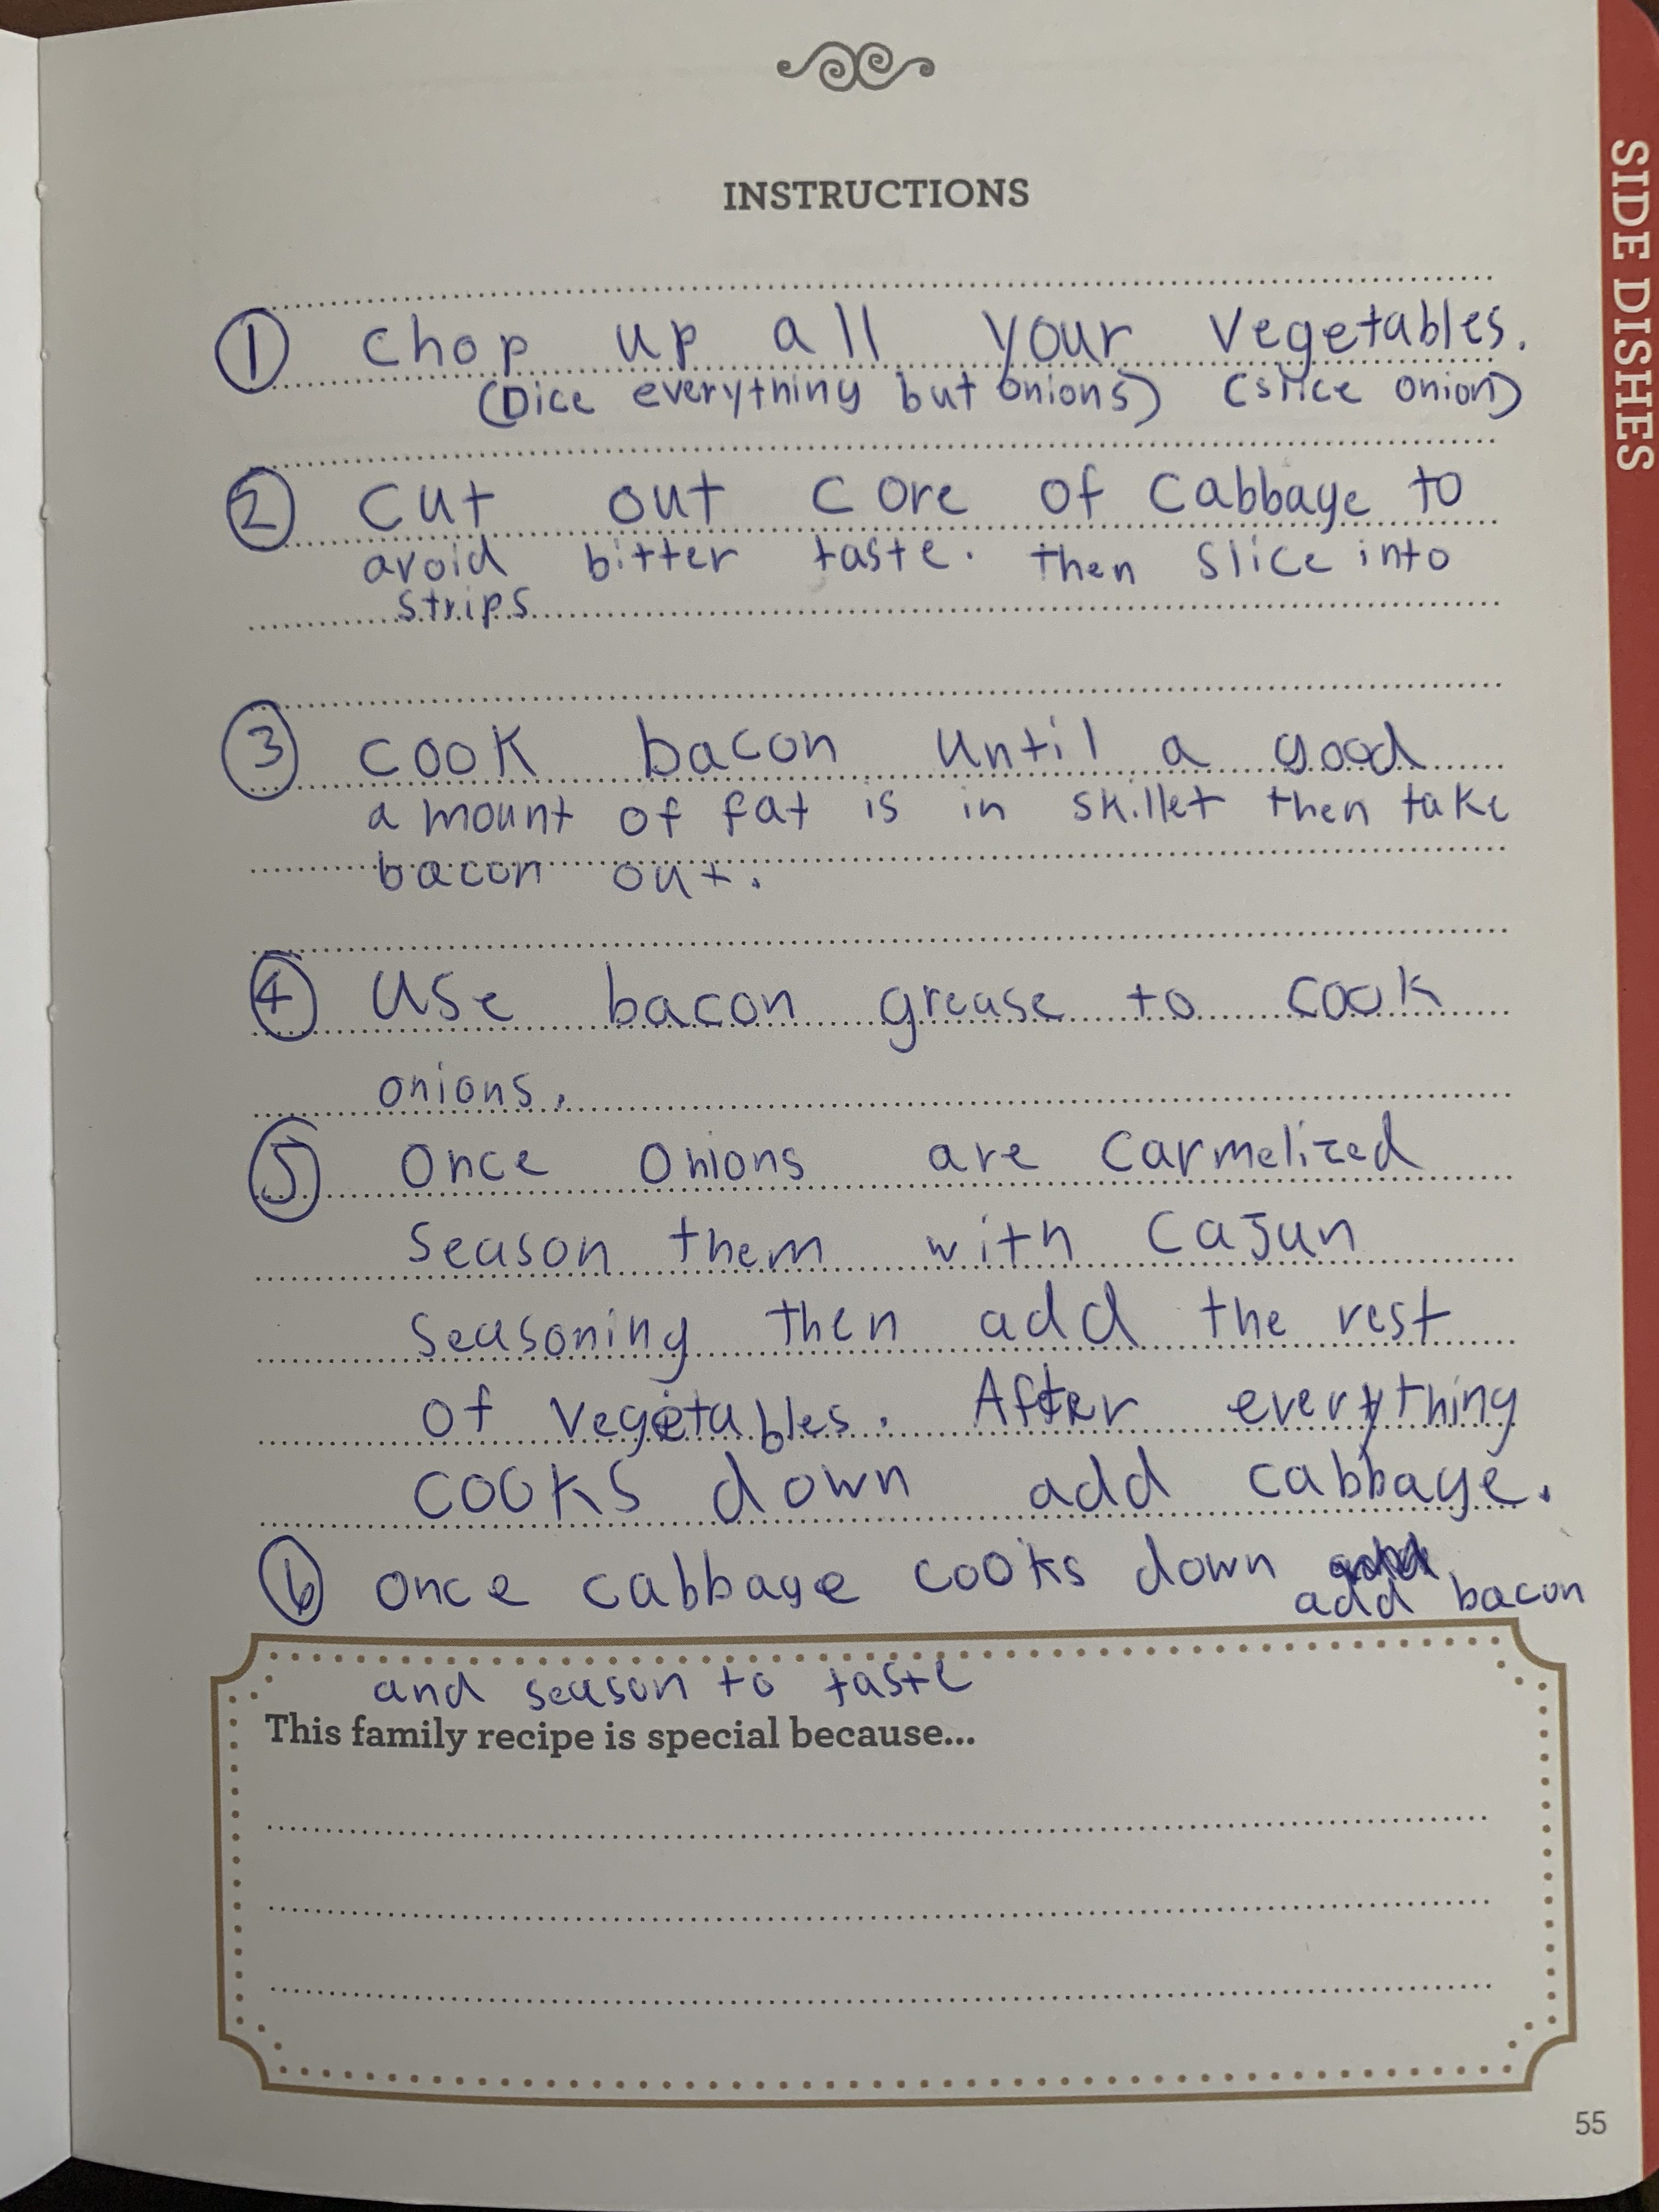 SIDE DISHES
INSTRUCTIONS
① Chop up all your vegetables.
(Dice everything but onions) (slice onion)
② Cut out core of cabbage to
avoid bitter taste. then slice into
strips
③ cook bacon until a good
amount of fat is in skillet then take
bacon out.
④ use bacon grease to cook
onions.
⑤ once onions are carmelized
season them with cajun
seasoning then add the rest
of vegetables. After everything
cooks down add cabbage.
⑥ once cabbage cooks down
add bacon
and season to taste
This family recipe is special because...
55